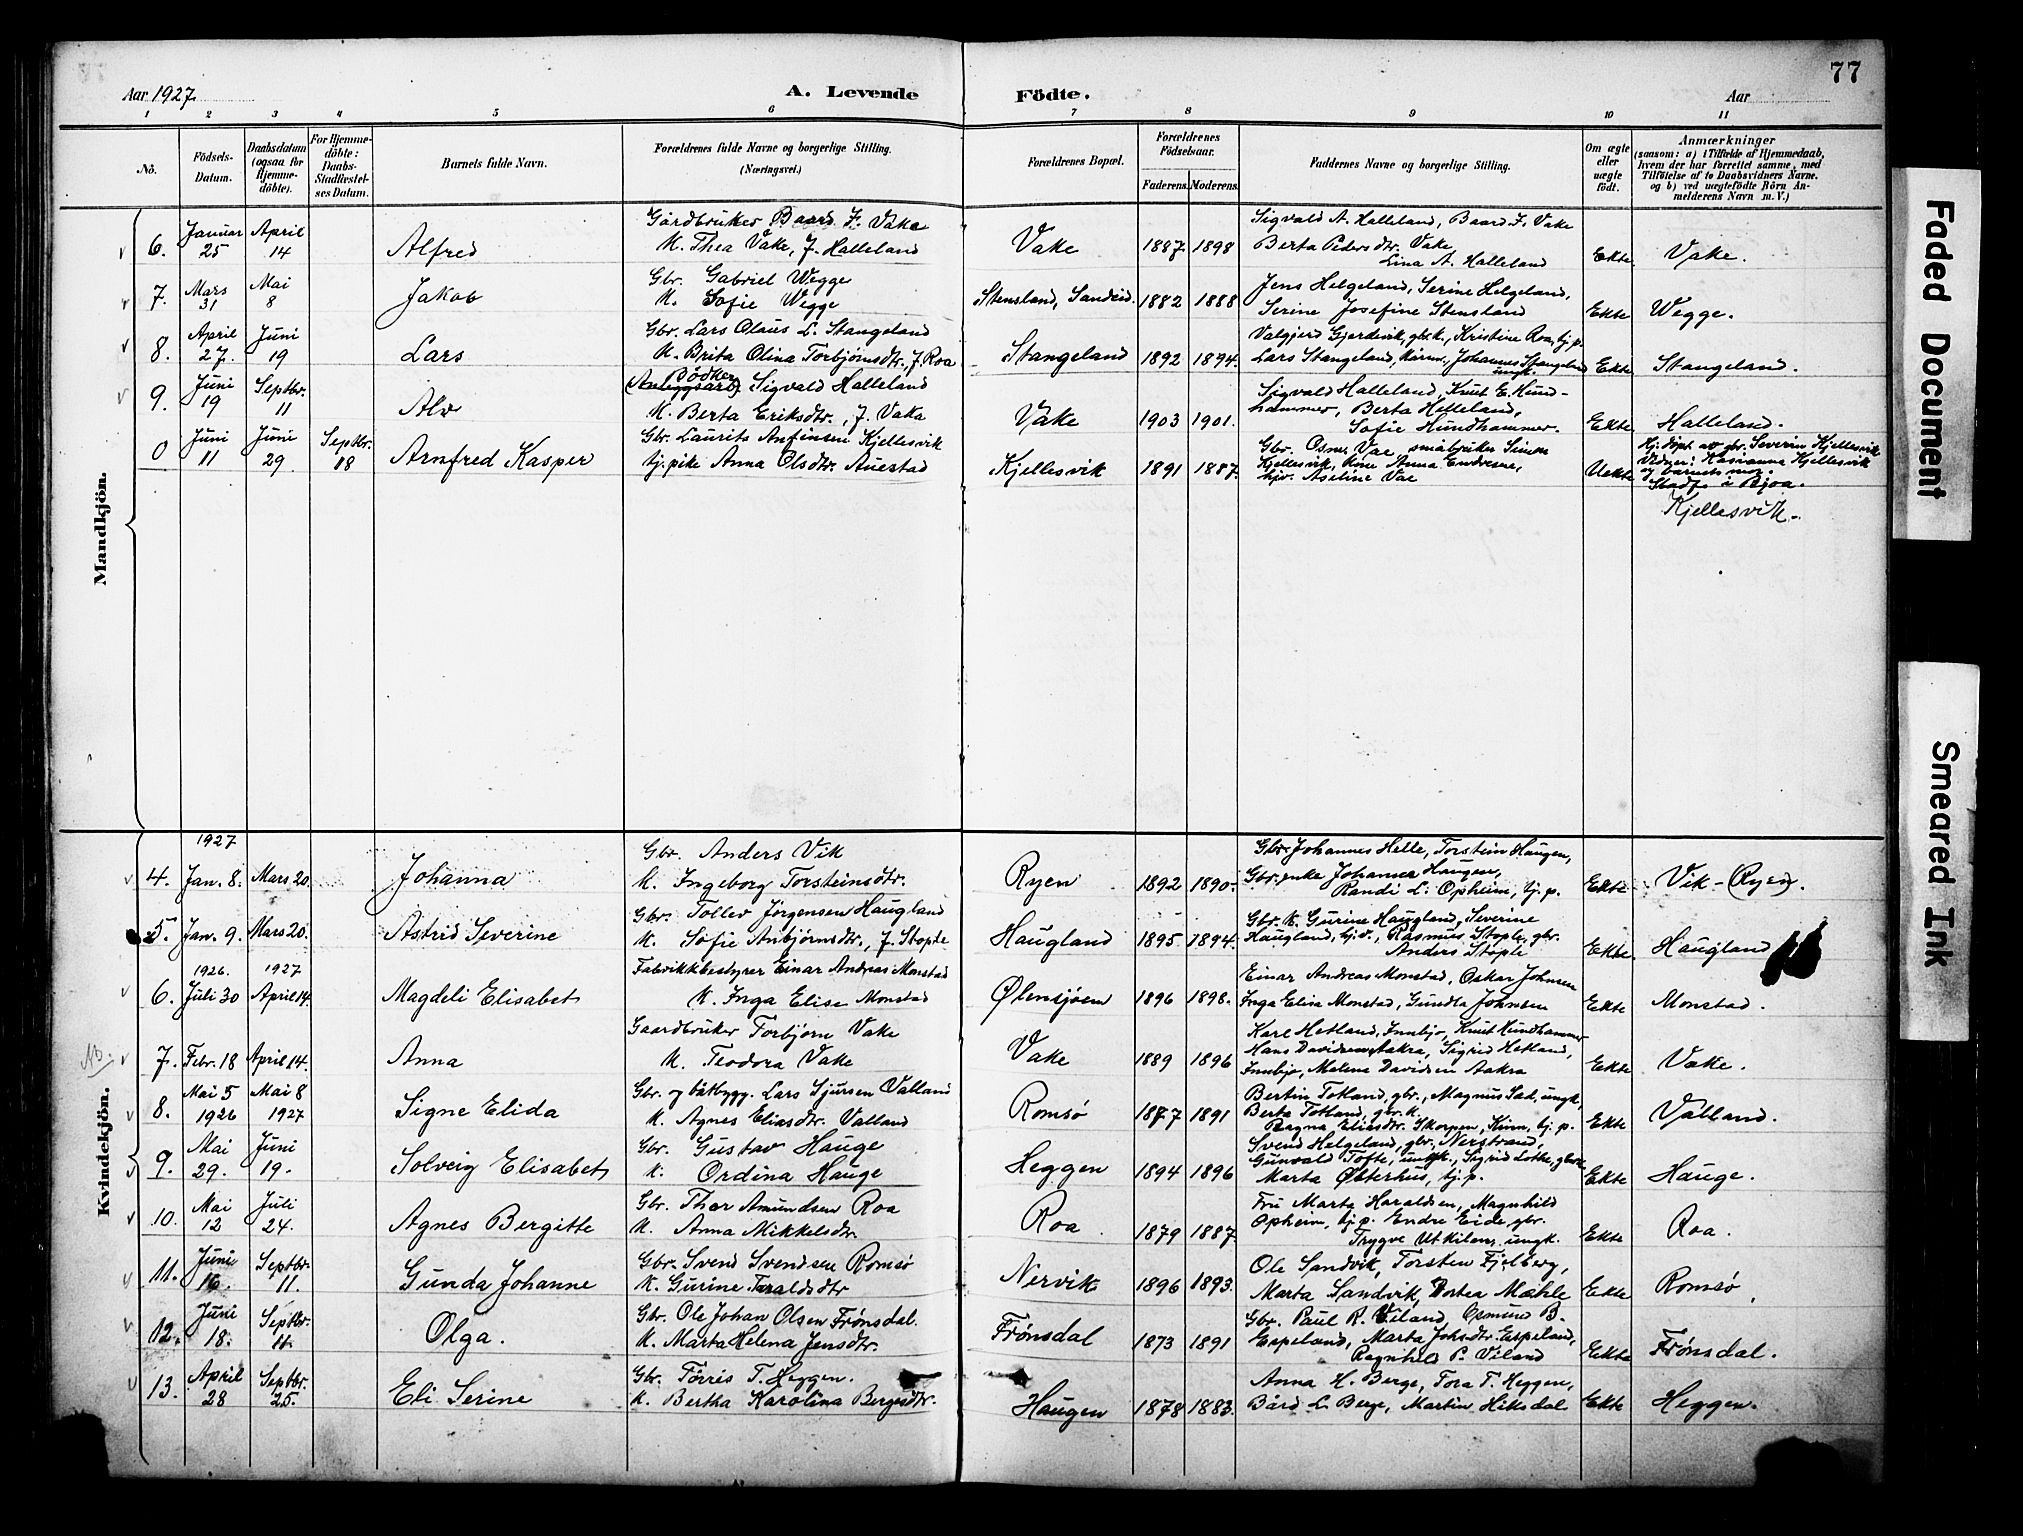 77
Aar 1927
A. Levende Födte.
Aar
1 2 3 4 5 6 7 8 9 10 11
Nô. Födsels-Datum. Daabsdatum (ogsaa for Hjemme-döbte). For Hjemme-döbte: Daabs-Stadfæstel-ses Datum. Barnets fulde Navn. Forældrenes fulde Navne og borgerlige Stilling. (Næringsvei.) Forældrenes Bopæl. Forældrenes Födselsaar. Faderens. Moderens. Faddernes Navne og borgerlige Stilling. Om ægte eller uægte födt. Anmærkninger (saasom: a) i Tilfælde af Hjemmedaab, hvem der har forrettet samme, med Tilföielse af to Daabsvidners Navne. og b) ved uægtefödte Börn An-melderens Navn m. V.)
Mandkjön.
6. Januar 25 April 14 Alfred Gårdbruker Baard F. Vake
K. Thea Vake, f. Halleland Vake 1887 1898 Sigvald A. Halleland, Baard F. Vake
Berta Pedersdtr. Vake
Lina A. Halleland Ekte. Vake.
7. Mars 31 Mai 8 Jakob Gbr. Gabriel Wegge
K. Sofie Wegge Stensland, Sandeid. 1882 1888 Jens Helgeland, Serine Helgeland,
Serine Josefine Stensland Ekte Wegge.
8. April 27. Juni 19 Lars Gbr. Lars Olaus L. Stangeland
K. Brita Olina Torbjørnsdtr., f. Roa Stangeland 1892 1894. Valgjerd Gjerdevik, gbr.k., Kristine Roa, tj.p.
Lars Stangeland, Johannes Stangeland
ungk. Ekte Stangeland.
9. Juni 19 Septbr. 11 Alv Bødker
(Anleggsarb) Sigvald Halleland
K. Berta Eriksdtr., f. Vaka Vake 1903 1901. Sigvald Halleland, Knut E. Hund-
hammer, Berta Halleland,
Sofie Hundhammer. Ekte Halleland.
0 Juni 11 Juni 29. Septbr. 18 Arnfred Kasper Gbr. Laurits Anfinsen Kjellesvik
tj.pike Anna Olsdtr. Auestad Kjellesvik 1891 1887. Gbr. Osm. Vae, småbruker Simon
Kjellesvik, Kone Anna Endresen,
hjv. Aseline Vae Uekte Hj.døpt av gbr. Severin Kjellesvik
Vidner: Kasianna Kjellesvik
og barnets mor.
Stadf. i Bjoa.
Kjellesvik.
Kvindekjön.
1927
4. Jan. 8. Mars 20. Johanna Gbr. Anders Vik
K. Ingeborg Torsteinsdtr. Ryen 1892 1890. Gbr. Johannes Helle, Torstein Haugen,
Gbr.enke Johanna Haugen,
Randi L. Opheim, tj.p. Ekte Vik-Ryen.
5. Jan. 9. Mars 20. Astrid Severine Gbr. Tollev Jørgensen Haugland
K. Sofie Anbjørnsdtr., f. Stople Haugland 1895 1894. Gbr. K. Gurine Haugland, Severine
Haugland, tj.v., Rasmus Stople, gbr.
Anders Stople Ekte Haugland
6. 1926. Juli 30 1927 April 14 Magdeli Elisabet Fabrikkbestyrer Einar Andreas Monstad
K. Inga Elise Monstad Ølensjøen 1896 1898. Einar Andreas Monstad, Oskar Johnsen
Inga Elisa Monstad, Gundla Johnsen Ekte Monstad.
NB. 7. Febr. 18 April 14. Anna Gaardbruker Torbjørn Vake
K. Teodora Vake Vake 1889 1896 Karl Hetland, Innbjo, Knut Hundhammer
Hans Davidsen Aakra, Sigrid Hetland,
Innbjo, Malena Davidsen Aakra Ekte Vake.
8. Mai 5 1926 Mai 8 1927 Signe Elida Gbr. og båtbygg. Lars Sjursen Valland
K. Agnes Eliasdtr. Valland Romsø 1877 1891 Bertin Totland, gbr., Magnus Sad, ungk,
Berta Totland, gbr.k.
Ragna Eliasdtr. Skorpen, Kinn, tj.p. Ekte Valland.
9. Mai 29. Juni 19. Solveig Elisabet Gbr. Gustav Hauge
K. Ordina Hauge Heggen 1894 1896 Svend Helgeland, gbr. Nerstrand,
Gunvald Tofte, ungk., Sigrid Lothe,
Marta Østerhus, tj.p. Ekte Hauge.
10. Mai 12 Juli 24. Agnes Bergitte Gbr. Thor Amundsen Roa
K. Anna Mikkelsdtr. Roa 1879 1887. Fru Marta Haraldsen, Magnhild
Opheim, tj.p. Endre Eide, gbr.
Trygve Utkilen, ungk. Ekte Roa.
11. Juni 16. Septbr. 11. Gunda Johanne Gbr. Svend Svendsen Romsø
K. Gurine Taraldsdtr Nervik 1896 1893. Ole Sandvik, Torsten Fjelberg,
Marta Sandvik, Dortea Mæhle Ekte Romsø
12. Juni 18. Septbr. 11. Olga. Gbr. Ole Johan Olsen Frønsdal.
K. Marta Helena Jensdtr. Frønsdal 1873 1891 Gbr. Paul R. Viland, Osmund B.
Espeland, Marta Johsdtr. Espeland,
Ragnhild P. Viland Ekte Frønsdal.
13. April 28 Septbr. 25. Eli Serine Gbr. Tørris T. Heggen.
K. Bertha Karolina Bergesdtr. Haugen 1878 1883. Anna H. Berge, Tora T. Heggen,
Bård L. Berge, Martin Hiksdal Ekte Heggen.
Faded Document
Smeared Ink